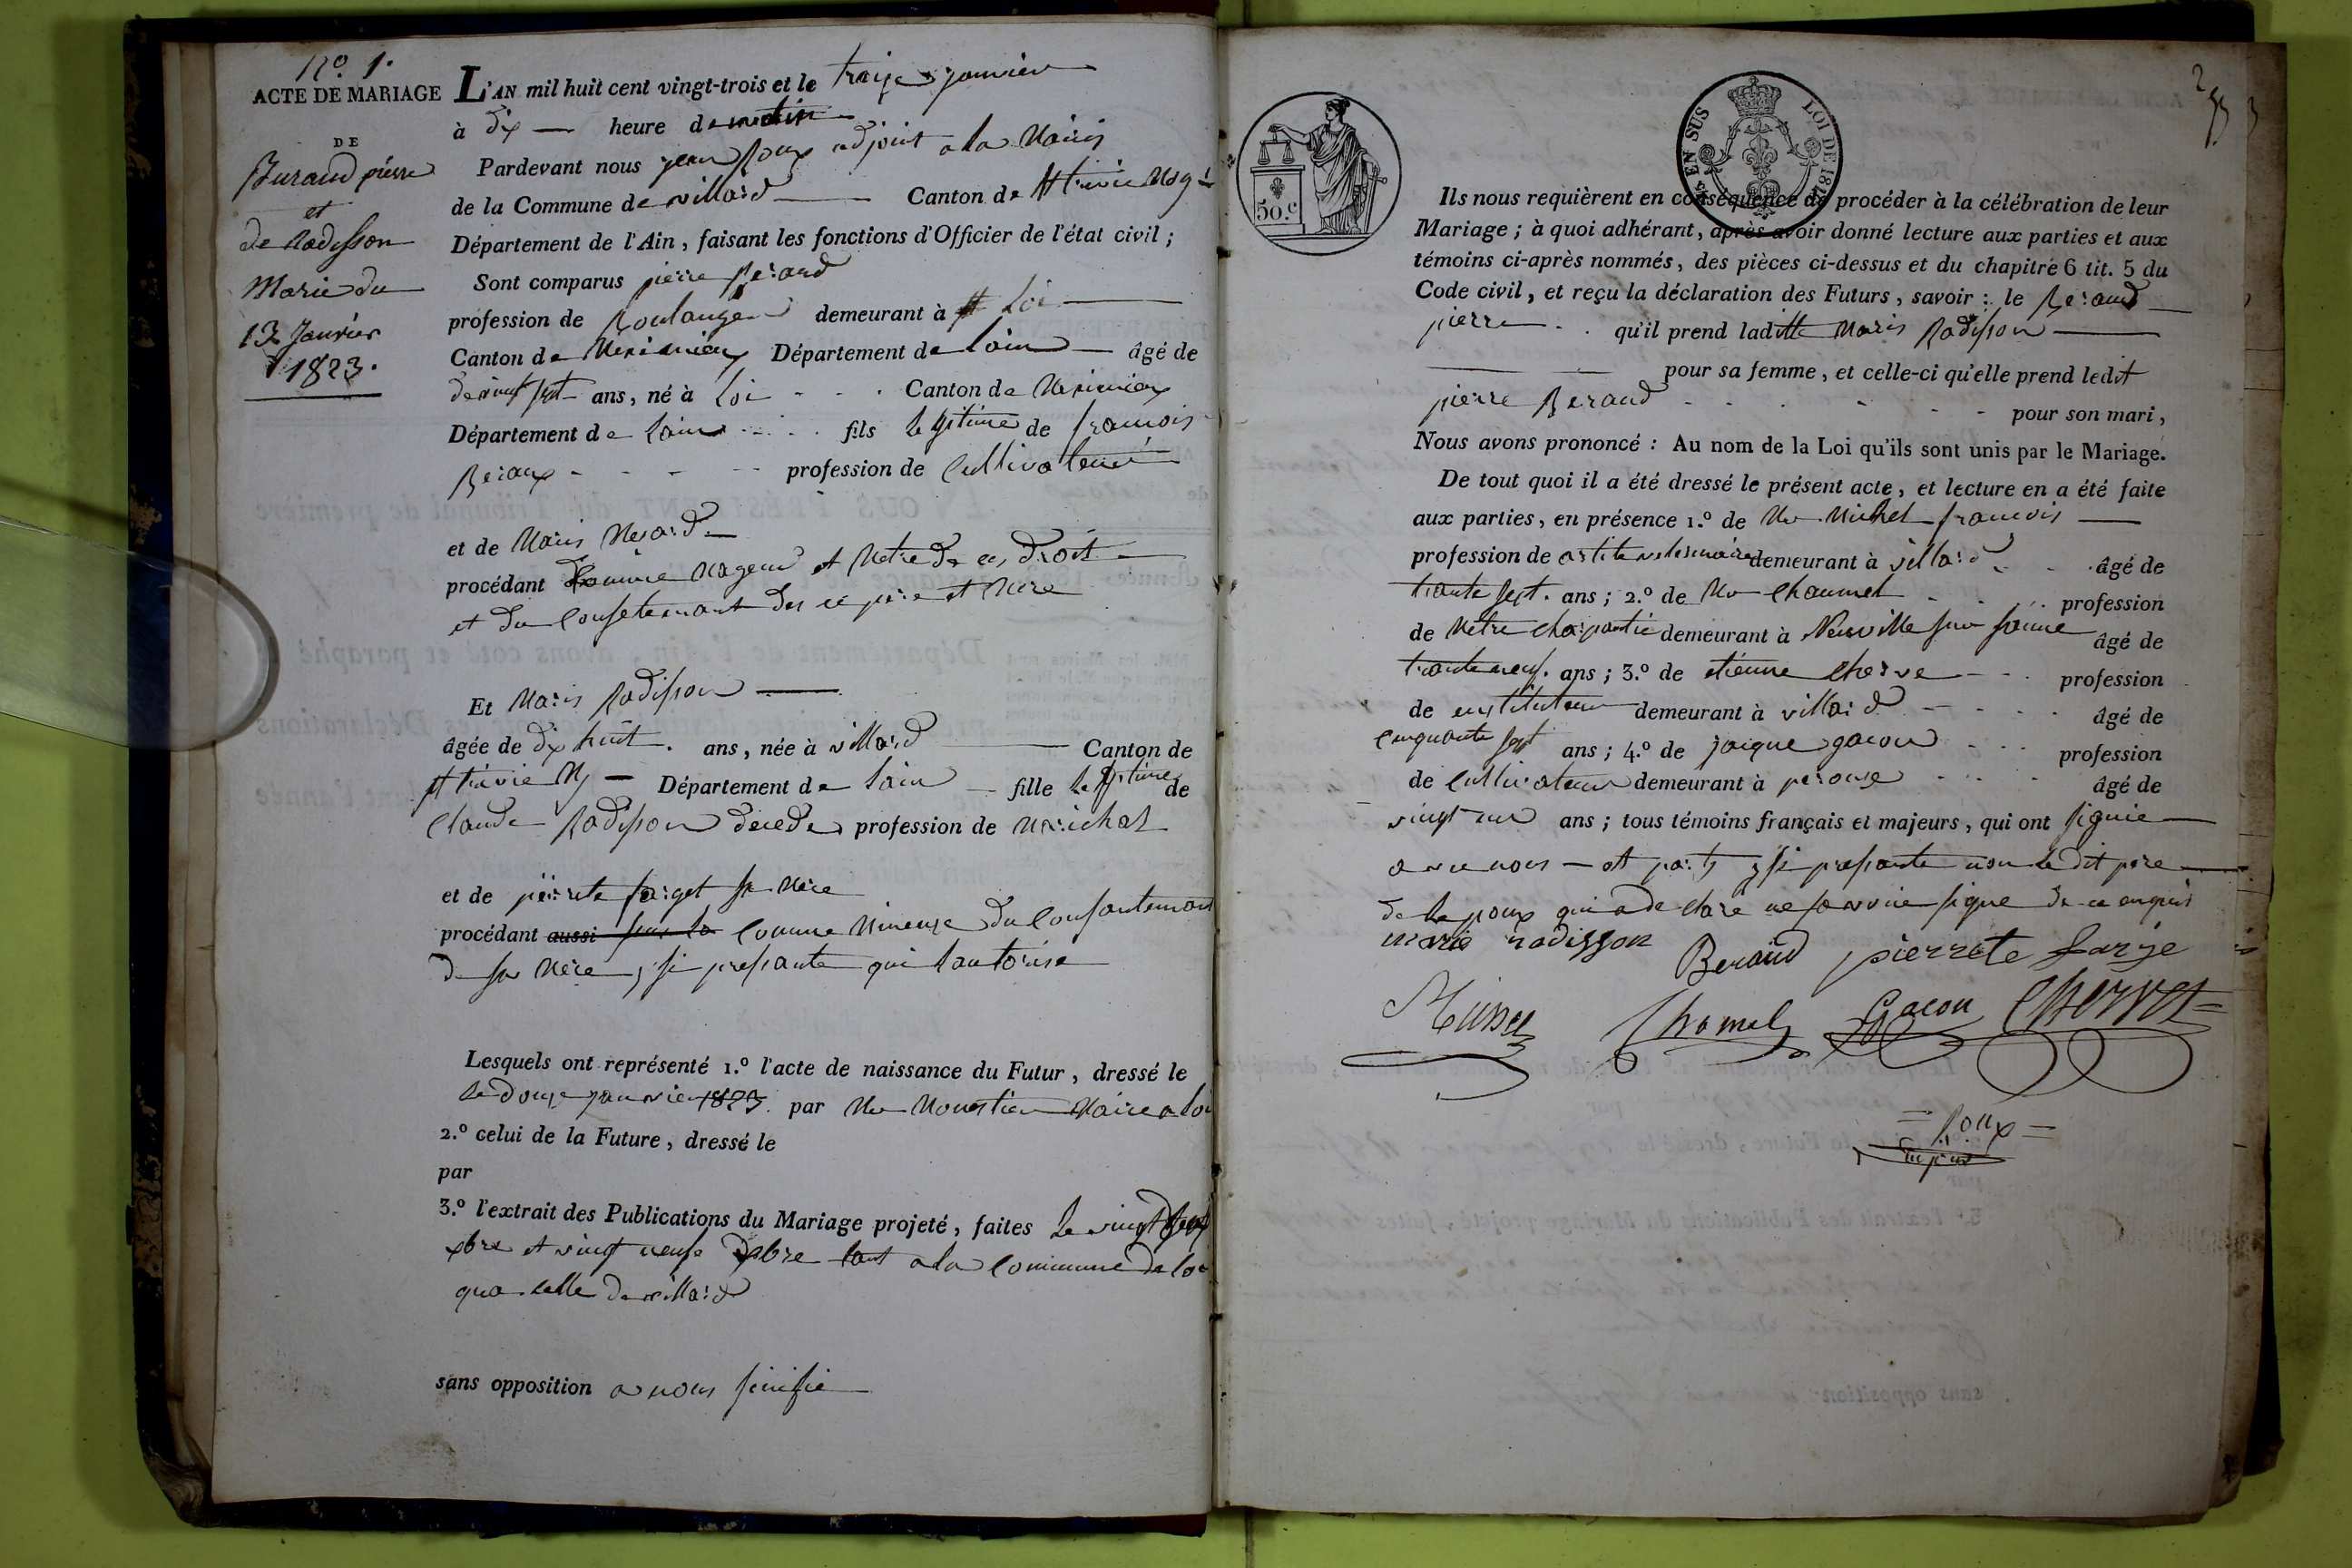 N.º 1.
ACTE DE MARIAGE
DE
Buraud pierre
et
de Radisson
Marie du
13 Janvier
1823.
L'AN mil huit cent vingt-trois et le traize janvier
à dix heure de matin
Pardevant nous jean Roux adjoint a la Mairis
de la Commune de villard Canton de st trivie
Département de l'Ain, faisant les fonctions d'Officier de l'état civil;
Sont comparus pierre Beraud
profession de Boulanger demeurant à st Loi
Canton de Meximieux Département de lain âgé de
sept ans, né à Loi Canton de Meximieux
Département de lain fils legitime de francois
Beraux profession de Cultivateur
et de Maris
procédant Comme Mageur et Metre de ces droit
et du Consetemant des ce pere et Mere
Et Maris Radisson
âgée de dix huit ans, née à villard Canton de
st trivie Département de lain fille legitime de
Claude Radisson decede profession de Marichal
et de pierrete farget sa Mere
procédant aussi Comme Mineure du Consantemant
de sa Mere, si presante qui lautorise
Lesquels ont représenté 1.º l'acte de naissance du Futur, dressé le
le douze janvier 1823 par Mr Monestier Maire a loi
2.º celui de la Future, dressé le
par
3.º l'extrait des Publications du Mariage projeté, faites le vingt deux
xbre et vingt neufe xbre tant a la Commune de loi
qua celle de villard
sans opposition a nous sinifie
50.c
¼ EN SUS
LOI DE 1816
Ils nous requièrent en conséquence de procéder à la célébration de leur
Mariage; à quoi adhérant, après avoir donné lecture aux parties et aux
témoins ci-après nommés, des pièces ci-dessus et du chapitre 6 tit. 5 du
Code civil, et reçu la déclaration des Futurs, savoir: le Beraud
pierre qu'il prend laditte Maris Radisson
pour sa femme, et celle-ci qu'elle prend ledit
pierre Beraud pour son mari,
Nous avons prononcé: Au nom de la Loi qu'ils sont unis par le Mariage.
De tout quoi il a été dressé le présent acte, et lecture en a été faite
aux parties, en présence 1.º de Mr Michel francois
profession de demeurant à villard âgé de
trante sept ans; 2.º de Mr Chaumel profession
de Metre charpantie demeurant à Neuville sur saune âgé de
trante neuf ans; 3.º de etienne Cherve profession
de enstituteur demeurant à villard âgé de
Cinquante sept ans; 4.º de jaique gacon profession
de Cultivateur demeurant à perouse âgé de
vingt un ans; tous témoins français et majeurs, qui ont signie
avec nous et party si presante non le dit pere
de lepoux qui a de clare ne savoir signe de ce enquis
marie radisson Beraud pierrete farje
Chomel Gacon Chervet
= Roux =
adjoint